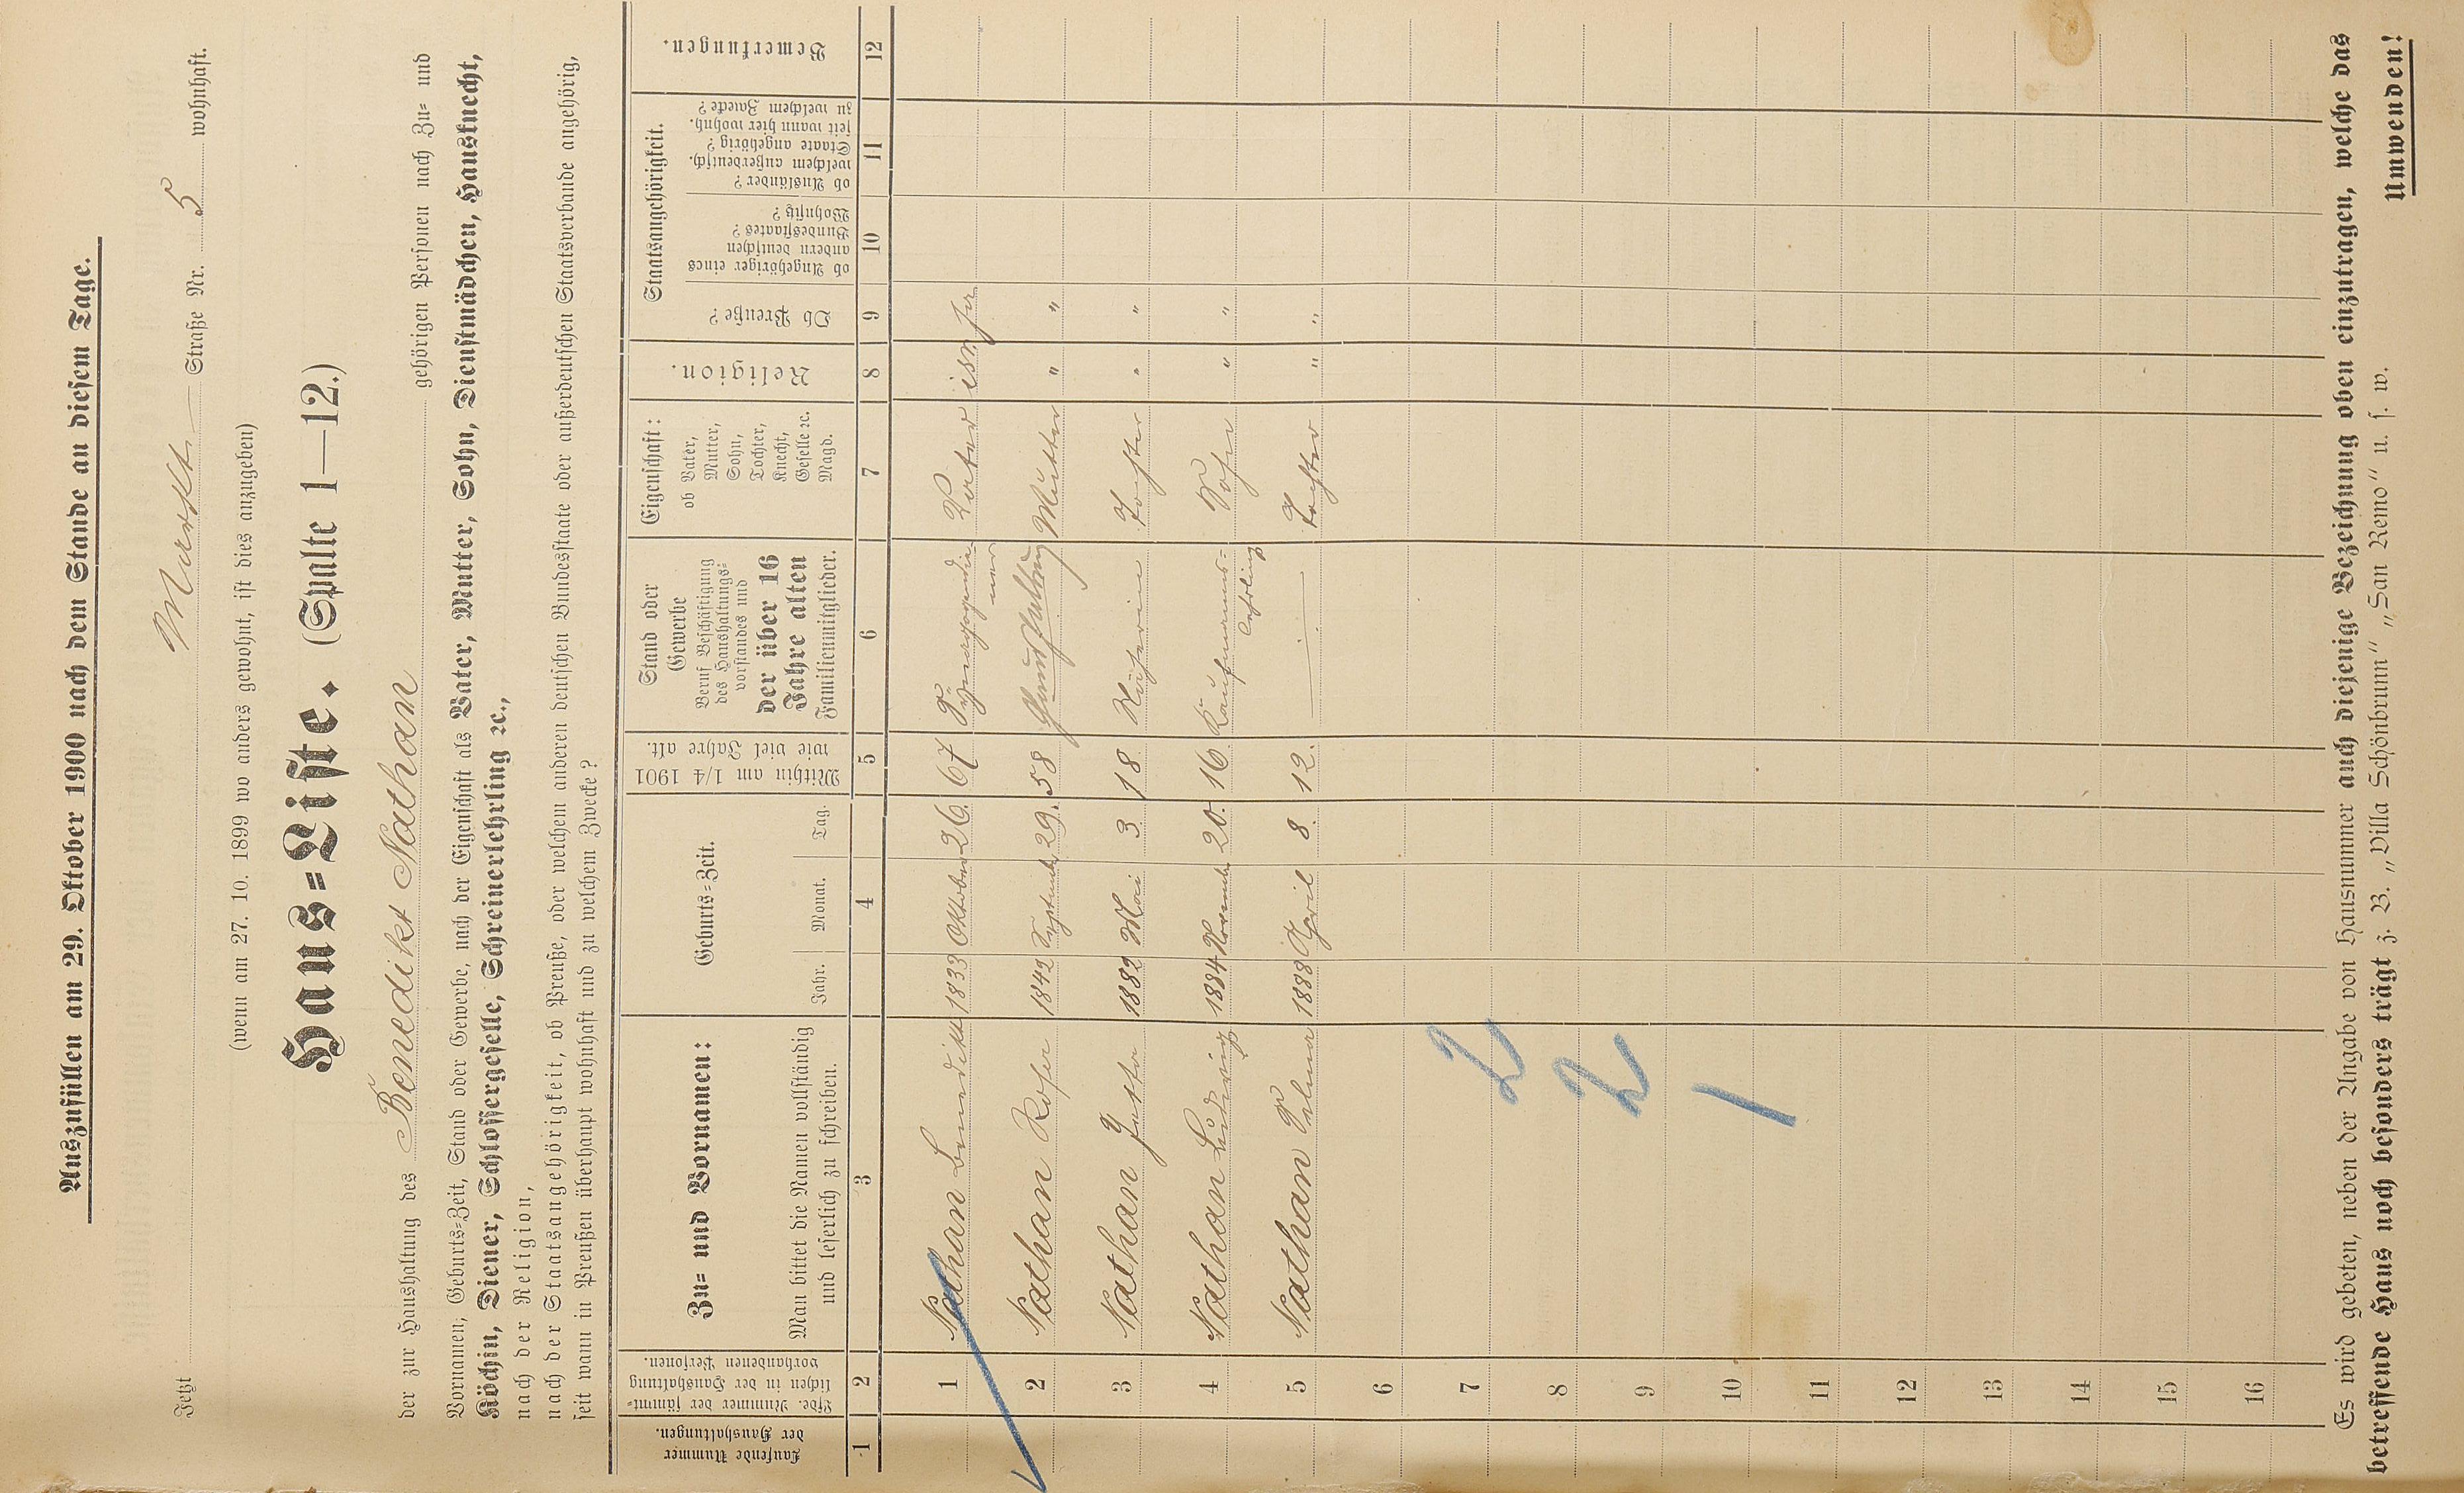 Auszufüllen am 29. Oktober 1900 nach dem Stande an diesem Tage.
Jetzt Markt Straße Nr. 5 wohnhaft.
(wenn am 27. 10. 1899 wo anders gewohnt, ist dies anzugeben)
Haus=Liste. (Spalte 1—12.)
der zur Haushaltung des Benedikt Nathan gehörigen Personen nach Zu= und
Vornamen, Geburts=Zeit, Stand oder Gewerbe, nach der Eigenschaft als Vater, Mutter, Sohn, Dienstmädchen, Hausknecht,
Köchin, Diener, Schlossergeselle, Schreinerlehrling ꝛc.,
nach der Religion,
nach der Staatsangehörigkeit, ob Preuße, oder welchem anderen deutschen Bundesstaate oder außerdeutschen Staatsverbande angehörig,
seit wann in Preußen überhaupt wohnhaft und zu welchem Zwecke?
Laufende Nummer der Haushaltungen.
Lfde. Nummer der sämmt=lichen in der Haushaltung vorhandenen Personen.
Zu= und Vornamen:
Man bittet die Namen vollständig und leserlich zu schreiben.
Geburts=Zeit.
Jahr. Monat. Tag.
Mithin am 1/4 1901 wie viel Jahre alt.
Stand oder Gewerbe
Beruf Beschäftigung des Haushaltungs=vorstandes und der über 16 Jahre alten Familienmitglieder.
Eigenschaft:
ob Vater, Mutter, Sohn, Tochter, Knecht, Geselle ꝛc. Magd.
Religion.
Staatsangehörigkeit.
Ob Preuße?
ob Angehöriger eines andern deutschen Bundesstaates? Wohnsitz?
ob Ausländer? welchem außerdeutsch. Staate angehörig? seit wann hier wohnh. zu welchem Zwecke?
Bemerkungen.
1 2 3 4 5 6 7 8 9 10 11 12
1 Nathan Benedikt 1833 Oktober 26. 67 Synagogendiener Vater isr. ja
2 Nathan Rosa 1842 September 29. 58 Haushaltung Mutter " "
3 Nathan 1882 Mai 3 18 Näherin Tochter " "
4 Nathan Ludwig 1884 November 20. 16 Kaufmanns=lehrling Sohn " "
5 Nathan Selma 1888 April 8. 12. — Tochter " "
6
7 2
8
9 2
10 1
11
12
13
14
15
16
Es wird gebeten, neben der Angabe von Hausnummer auch diejenige Bezeichnung oben einzutragen, welche das
betreffende Haus noch besonders trägt z. B. „Villa Schönbrunn" „San Remo" u. s. w.
Umwenden!